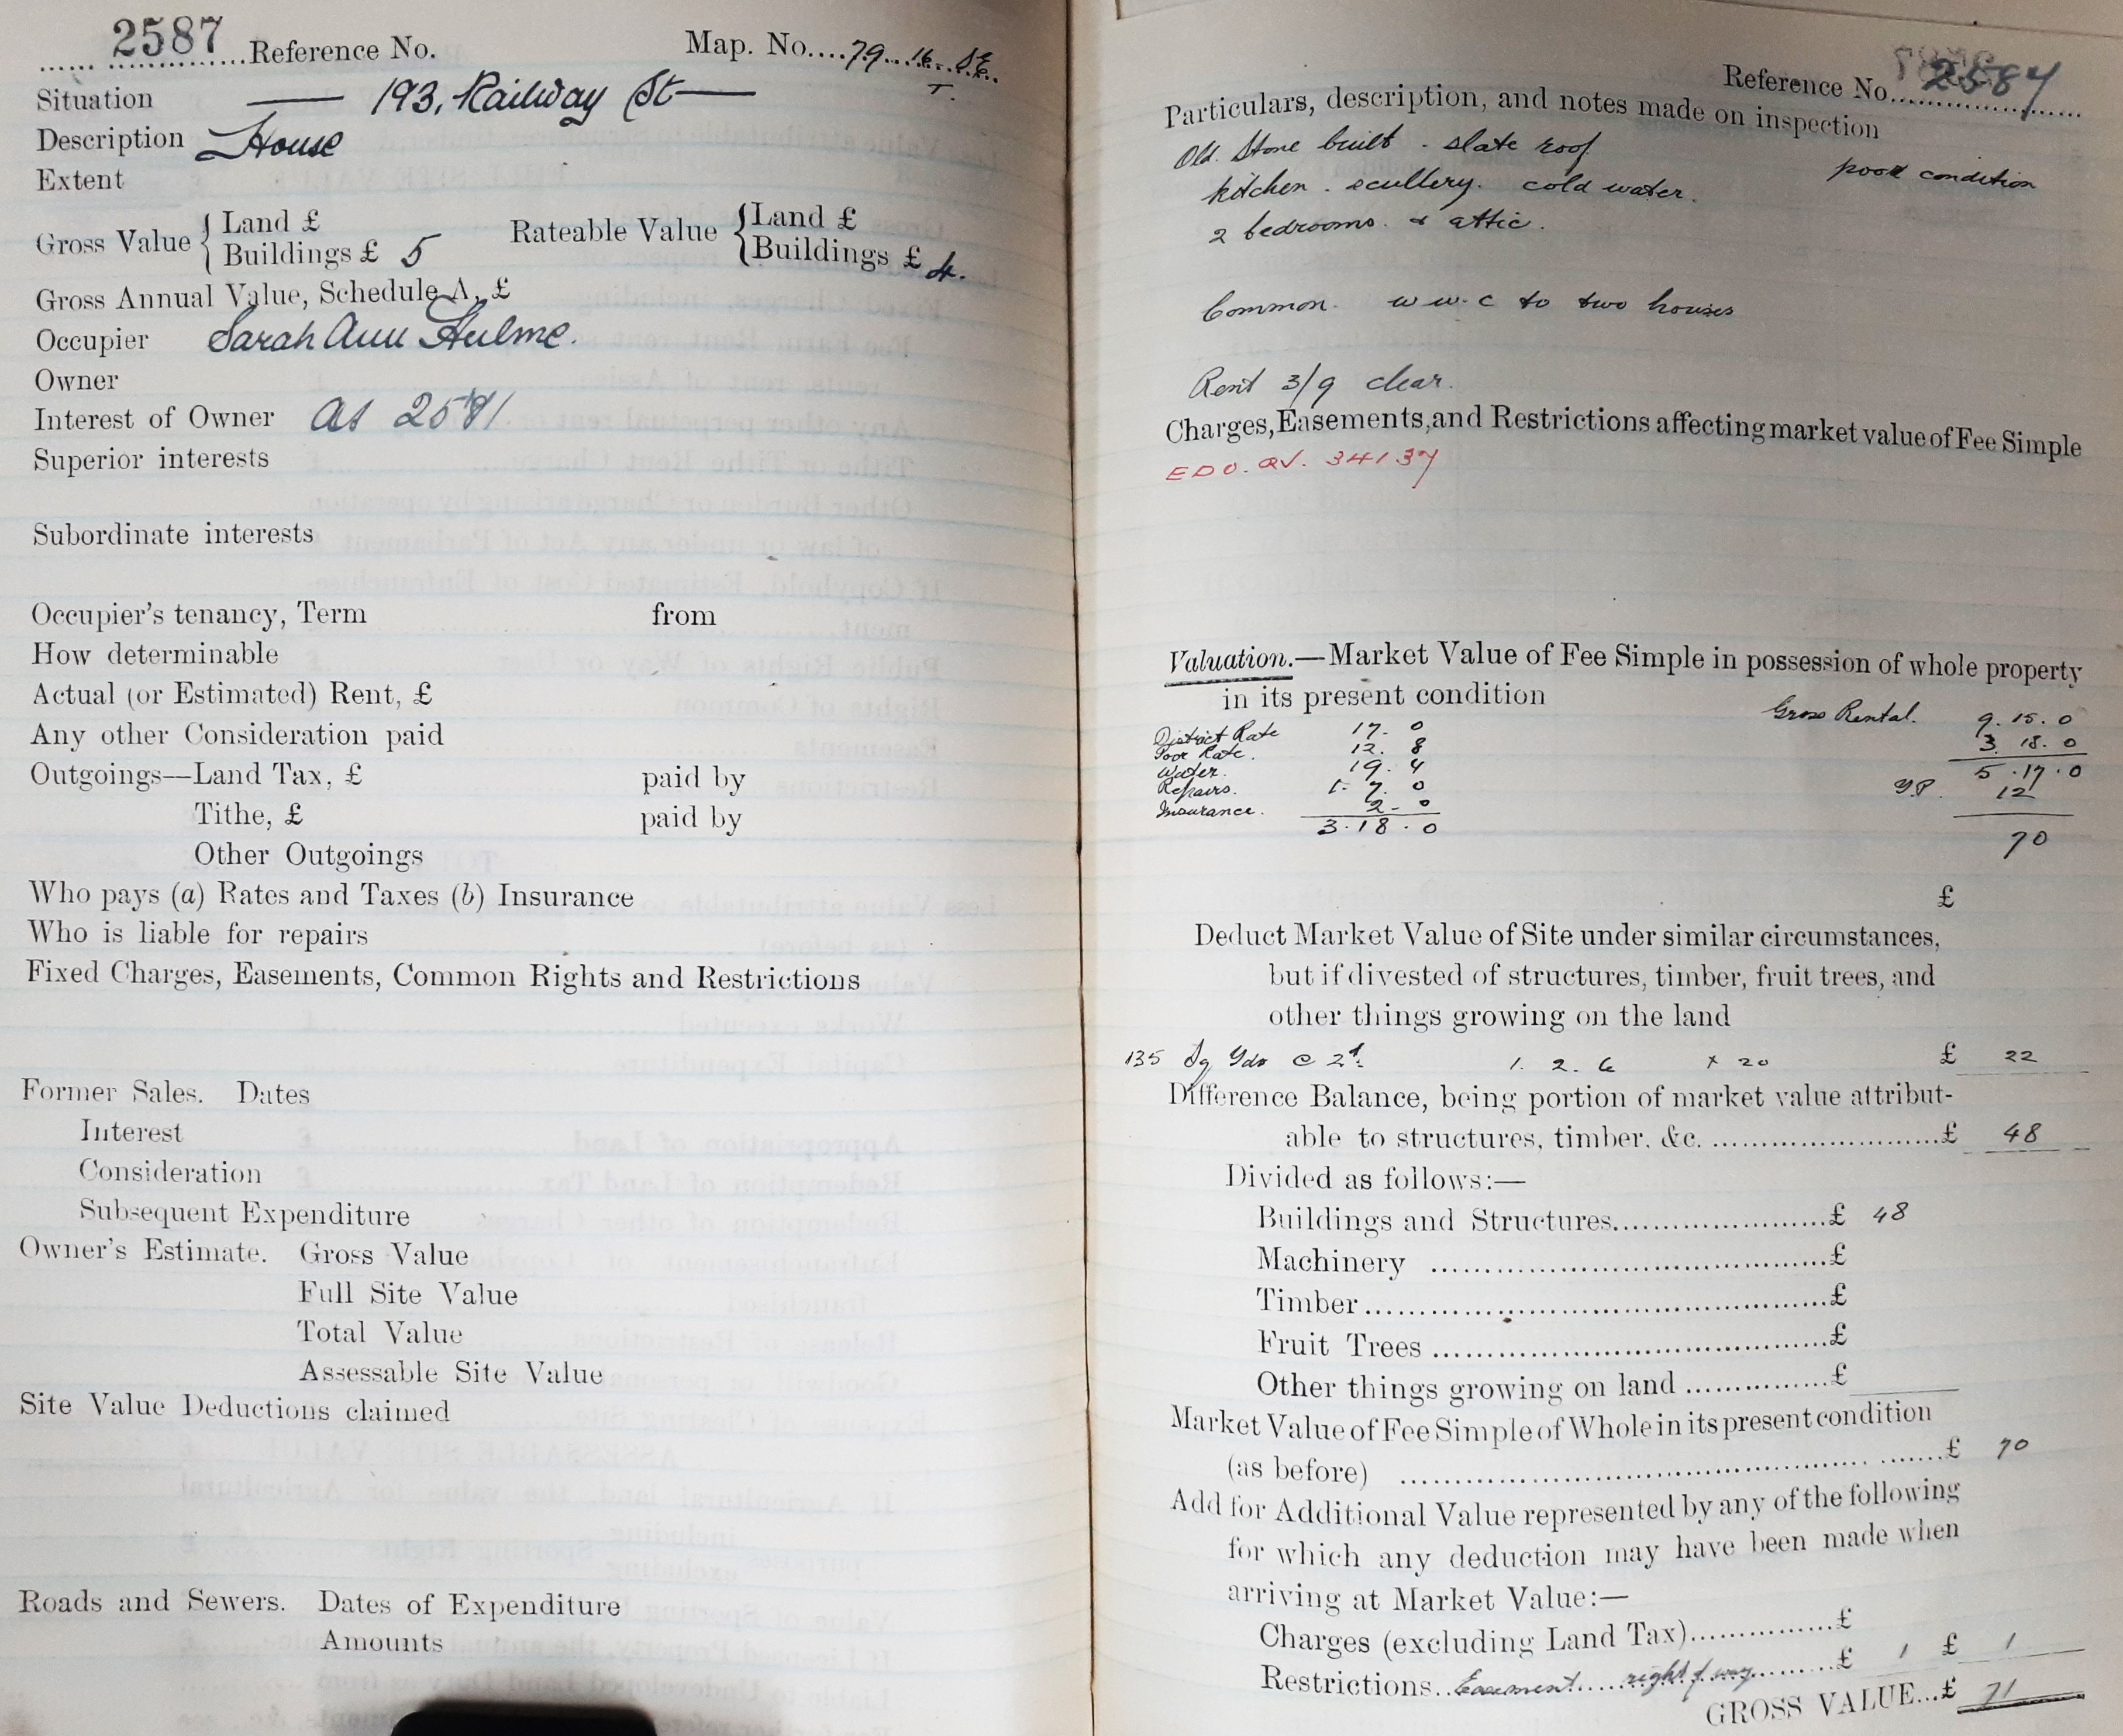 2587 Reference No. Map. No....79.16.SE.
T.
Situation — 193, Railway St —
Description House
Extent
Gross Value { Land £ Rateable Value { Land £
Buildings £ 5 Buildings £ 4.
Gross Annual Value, Schedule A, £
Occupier Sarah Ann Hulme.
Owner
Interest of Owner as 2581
Superior interests
Subordinate interests
Occupier's tenancy, Term from
How determinable
Actual (or Estimated) Rent, £
Any other Consideration paid
Outgoings—Land Tax, £ paid by
Tithe, £ paid by
Other Outgoings
Who pays (a) Rates and Taxes (b) Insurance
Who is liable for repairs
Fixed Charges, Easements, Common Rights and Restrictions
Former Sales. Dates
Interest
Consideration
Subsequent Expenditure
Owner's Estimate. Gross Value
Full Site Value
Total Value
Assessable Site Value
Site Value Deductions claimed
Roads and Sewers. Dates of Expenditure
Amounts
Reference No. 2587
Particulars, description, and notes made on inspection
Old. Stone built . slate roof
poor condition
kitchen . scullery. cold water.
2 bedrooms. & attic.
Common. w w.c to two houses
Rent 3/9 clear.
Charges, Easements, and Restrictions affecting market value of Fee Simple
EDO. QV. 34137
Valuation.—Market Value of Fee Simple in possession of whole property
in its present condition
Gross Rental. 9. 15. 0
District Rate 17. 0
3. 18. 0
Poor Rate. 12. 8
Water. 19. 4
5 . 17 . 0
Repairs. 1. 7. 0
YP. 12
Insurance. 2 - 0
3 . 18 . 0
70
£
Deduct Market Value of Site under similar circumstances,
but if divested of structures, timber, fruit trees, and
other things growing on the land
135 Sq Yds @ 2d. 1. 2. 6 x 20 £ 22
Difference Balance, being portion of market value attribut-
able to structures, timber, &c. ........................£ 48
Divided as follows:—
Buildings and Structures........................£ 48
Machinery ........................£
Timber........................£
Fruit Trees ........................£
Other things growing on land ...............£
Market Value of Fee Simple of Whole in its present condition
(as before) ........................£ 70
Add for Additional Value represented by any of the following
for which any deduction may have been made when
arriving at Market Value:—
Charges (excluding Land Tax)...............£
Restrictions..Easement.....right of way.........£ 1 £ 1
GROSS VALUE...£ 71